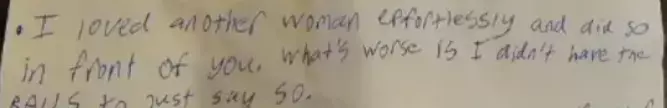 • I loved another woman effortlessly and did so
in front of you. What's worse is I didn't have the
BALLS to just say so.